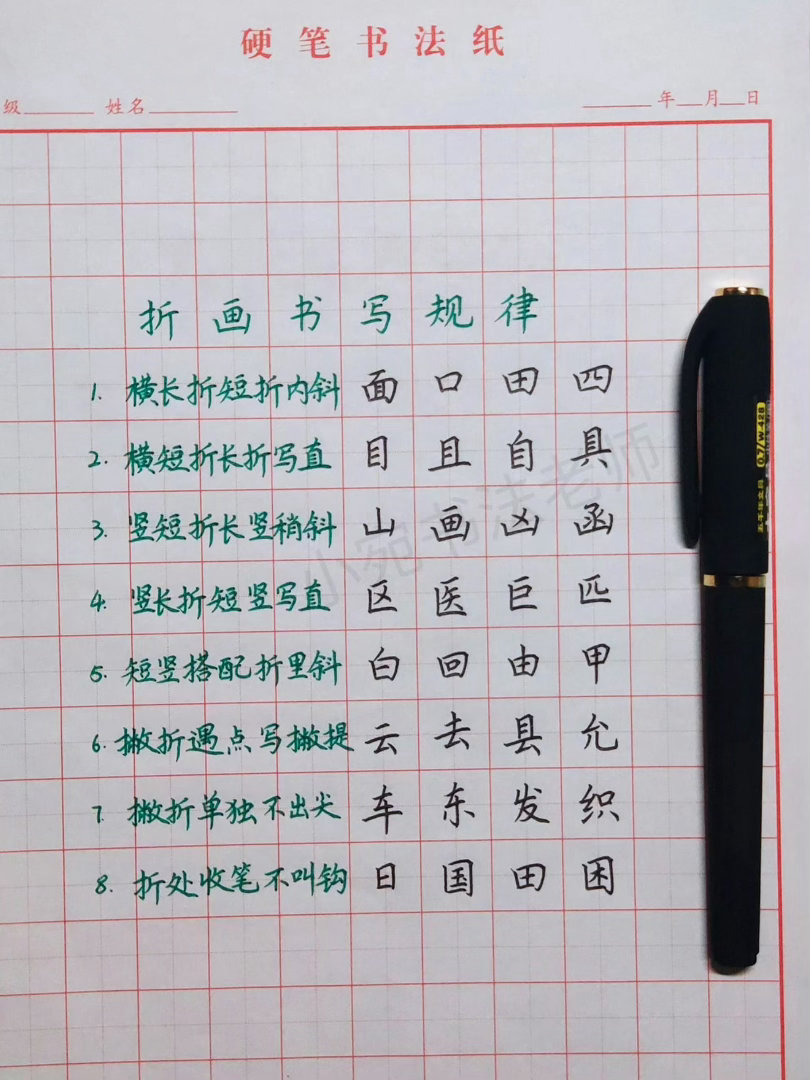 硬笔书法纸
级 姓名 年 月 日
折画书写规律
1. 横长折短折内斜 面 口 田 四
2. 横短折长折写直 目 且 自 具
3. 竖短折长竖稍斜 山 画 凶 函
4. 竖长折短竖写直 区 医 巨 匹
5. 短竖搭配折里斜 白 回 由 甲
6. 撇折遇点写撇提 云 去 县 允
7. 撇折单独不出尖 车 东 发 织
8. 折处收笔不叫钩 日 国 田 困
小宛书法老师
0.7/W.428